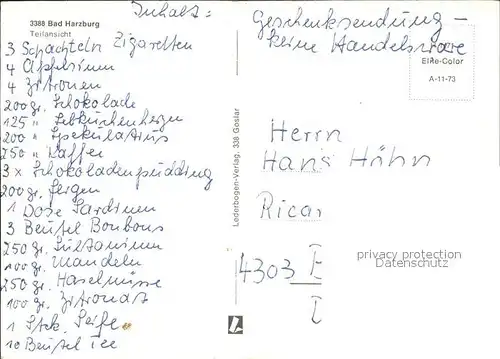 3388 Bad Harzburg
Teilansicht
Inhalt:
3 Schachteln Zigaretten
4 Apfelsinen
4 Zitronen
200 gr. Schokolade
125 " Lebkuchenherzen
200 " Spekulatius
250 " Kaffee
3 x Schokoladenpudding
200 gr. Feigen
1 Dose Sardinen
3 Beutel Bonbons
250 gr. Sultaninen
100 gr. Mandeln
250 gr. Haselnüsse
100 gr. Zitronat
1 Stck. Seife
10 Beutel Tee
Lederbogen-Verlag, 338 Goslar
Geschenksendung -
keine Handelsware
ElRe-Color
A-11-73
Herrn
Hans Höhn
Ricar
4303
privacy protection
Datenschutz